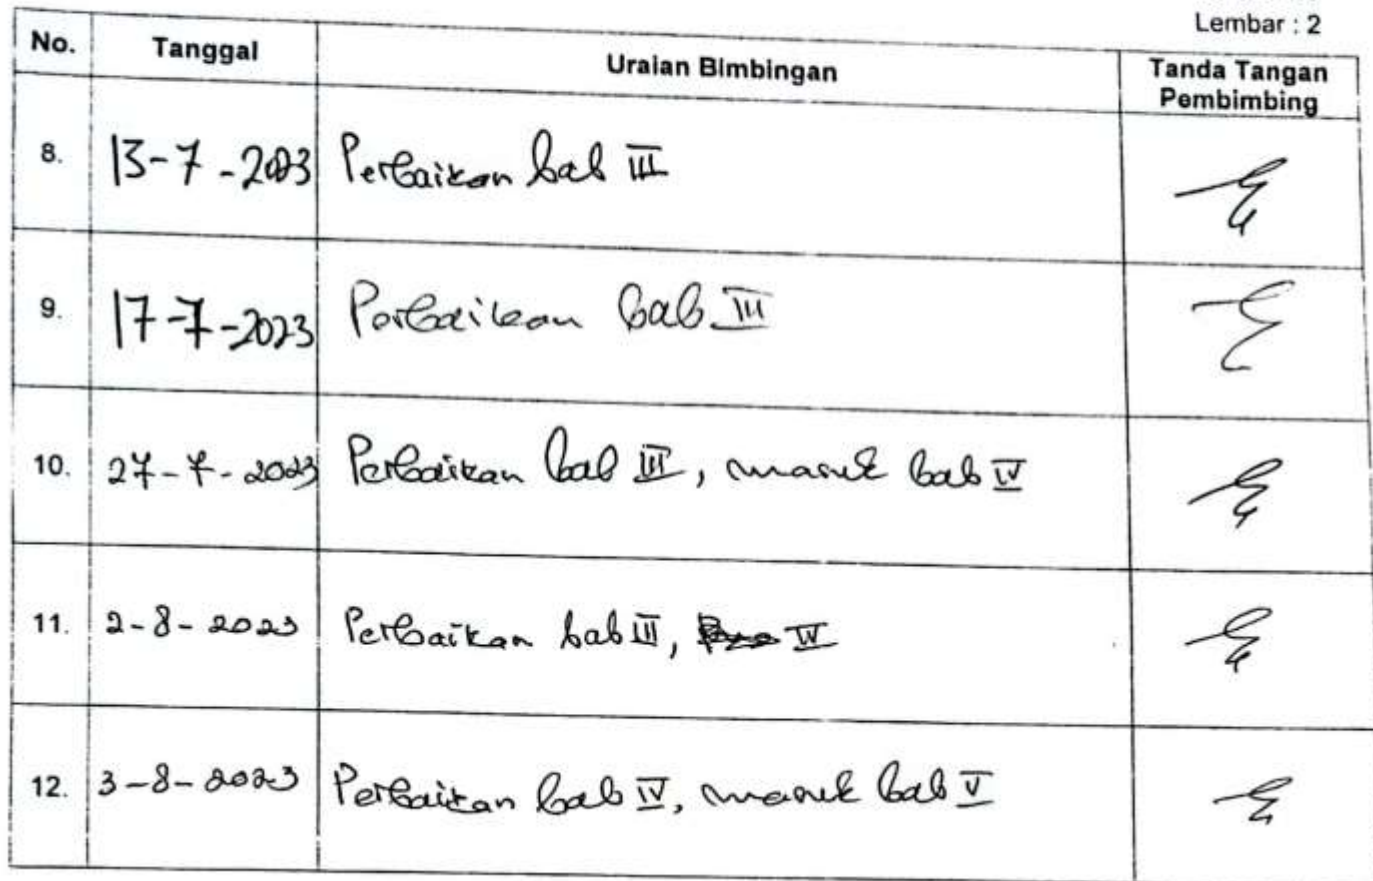 Lembar : 2
No. Tanggal Uraian Bimbingan Tanda Tangan
Pembimbing
8. 13-7-2023 Perbaikan bab III
9. 17-7-2023 Perbaikan bab III
10. 27-7-2023 Perbaikan bab III, masuk bab IV
11. 2-8-2023 Perbaikan bab III, IV
12. 3-8-2023 Perbaikan bab IV, masuk bab V